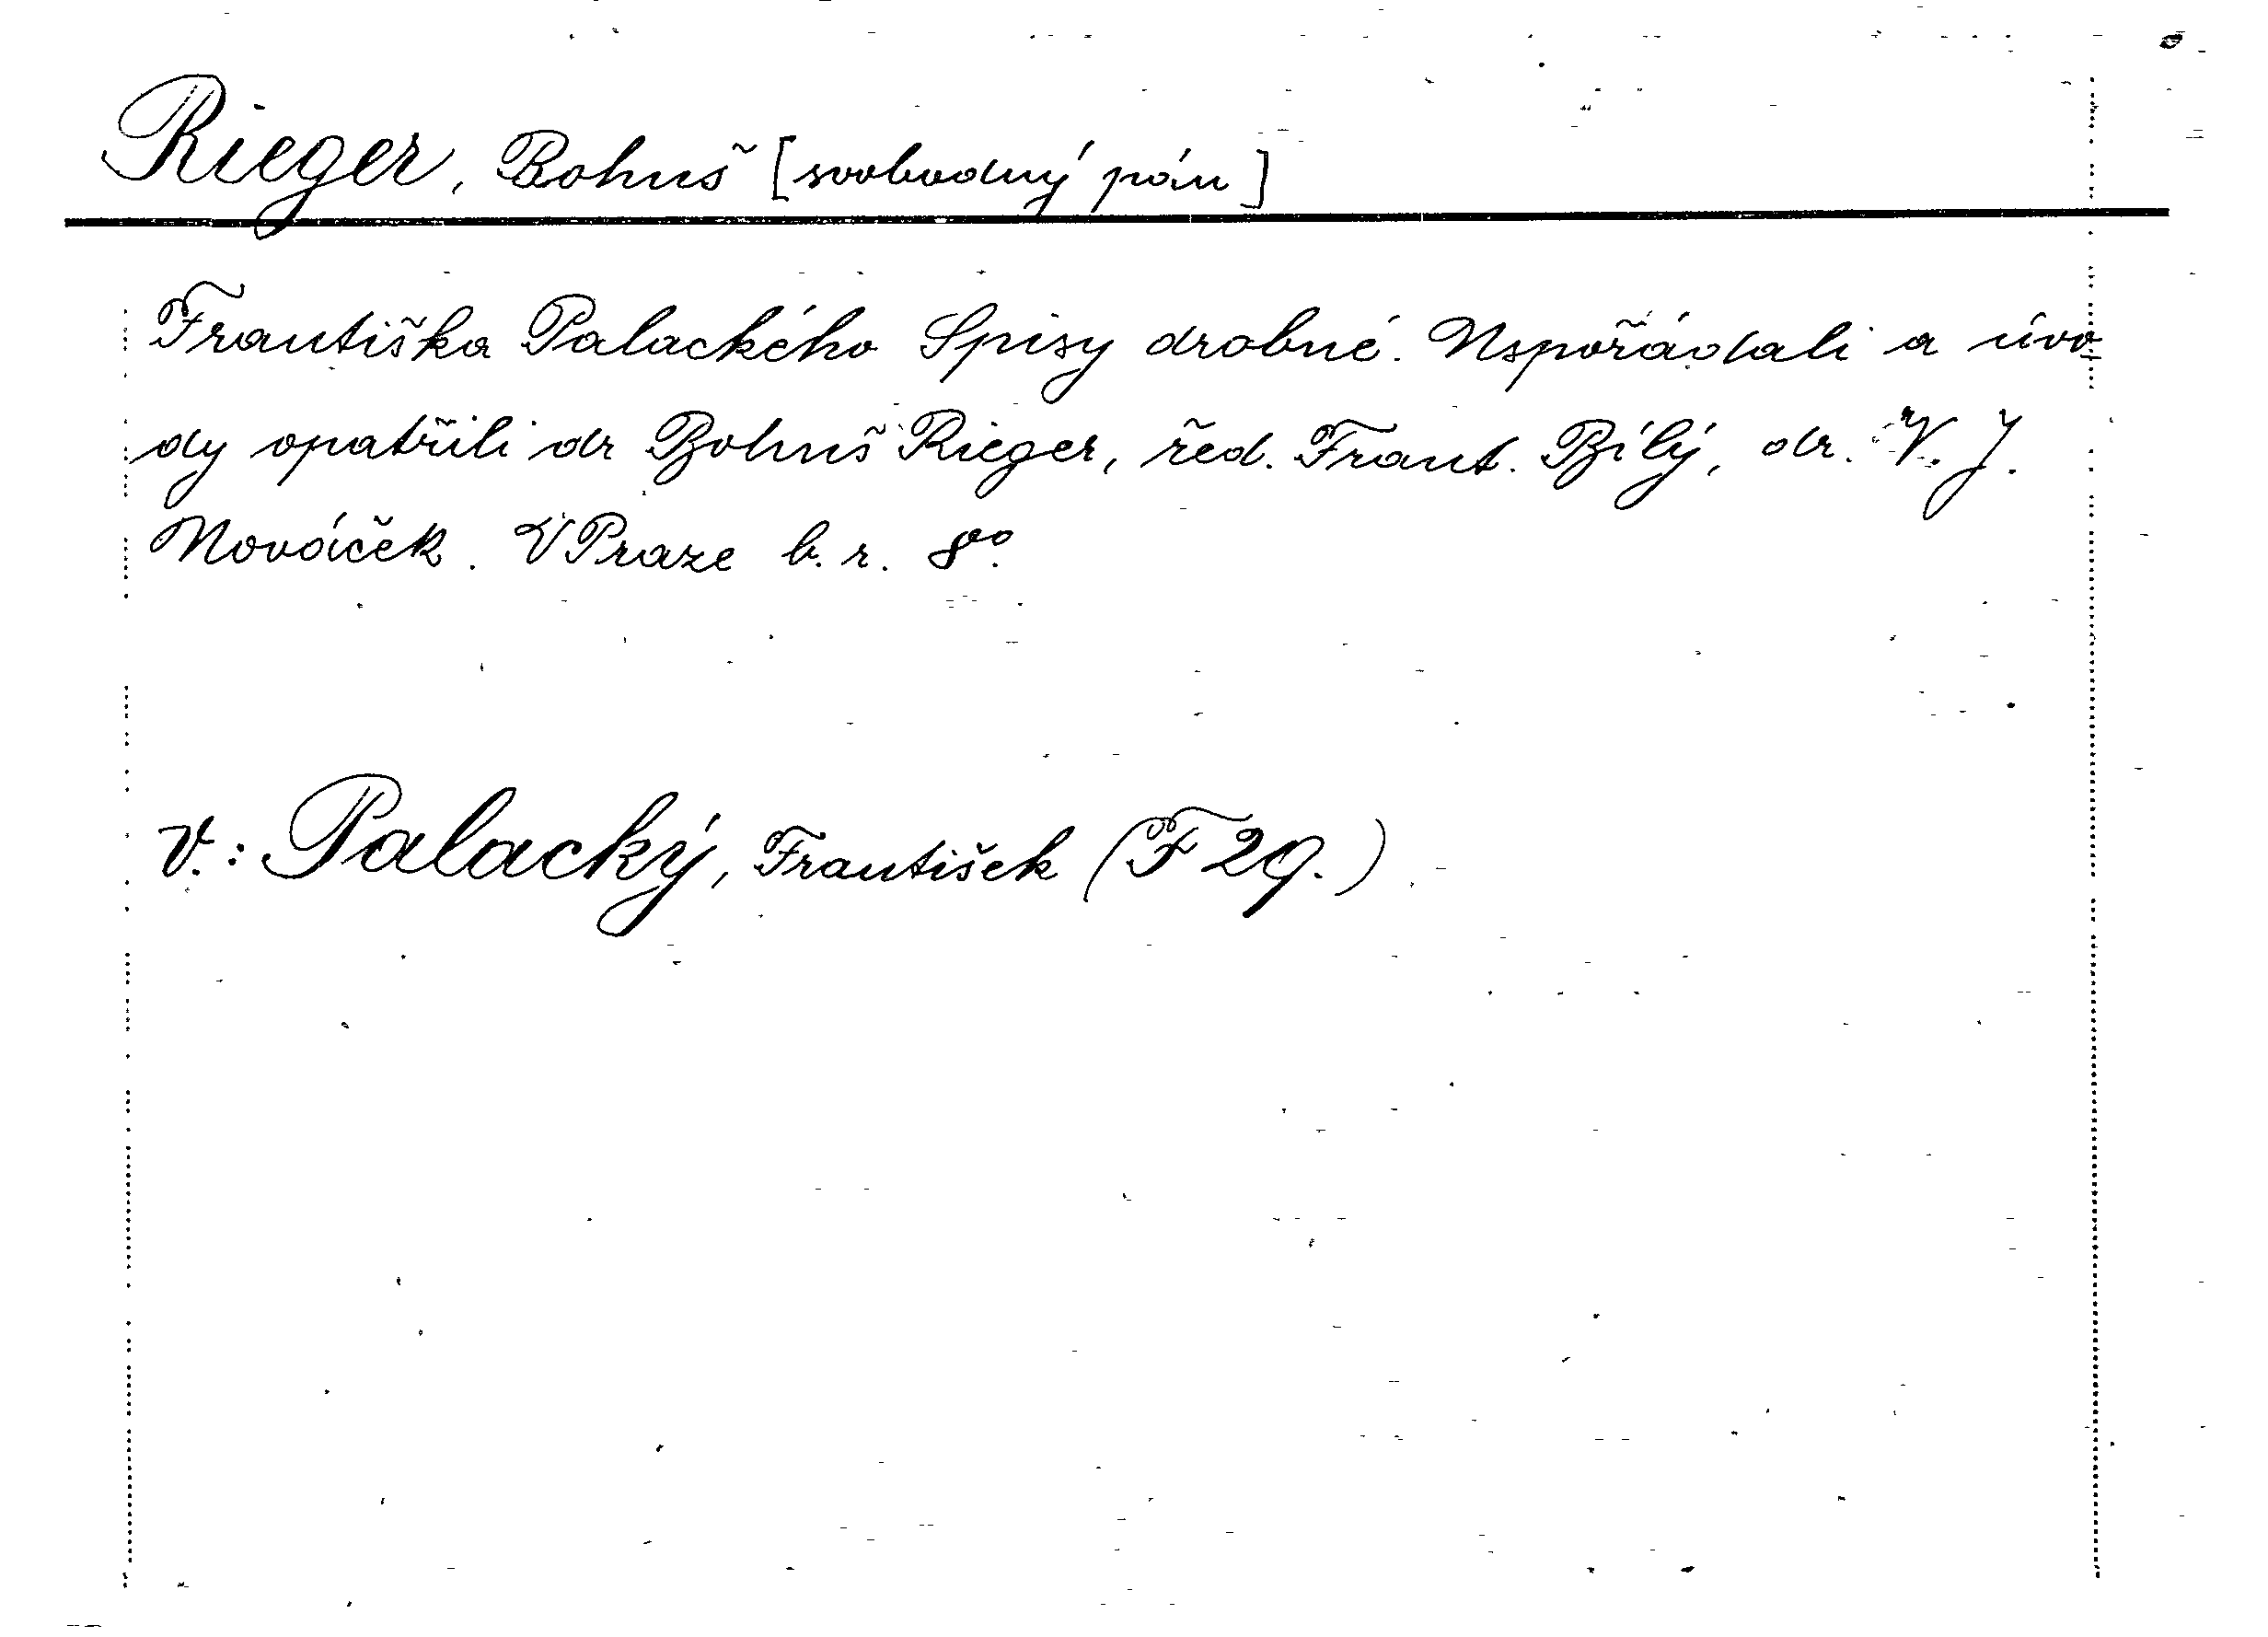 Rieger, Bohuš [svobodný pán]
Františka Palackého Spisy drobné. Uspořádali a úvo-
dy opatřili dr Bohuš Rieger, řed. Frant. Bílý, dr. V. J.
Nováček. V Praze b. r. 8°.
v.: Palacký, František (F 29.)